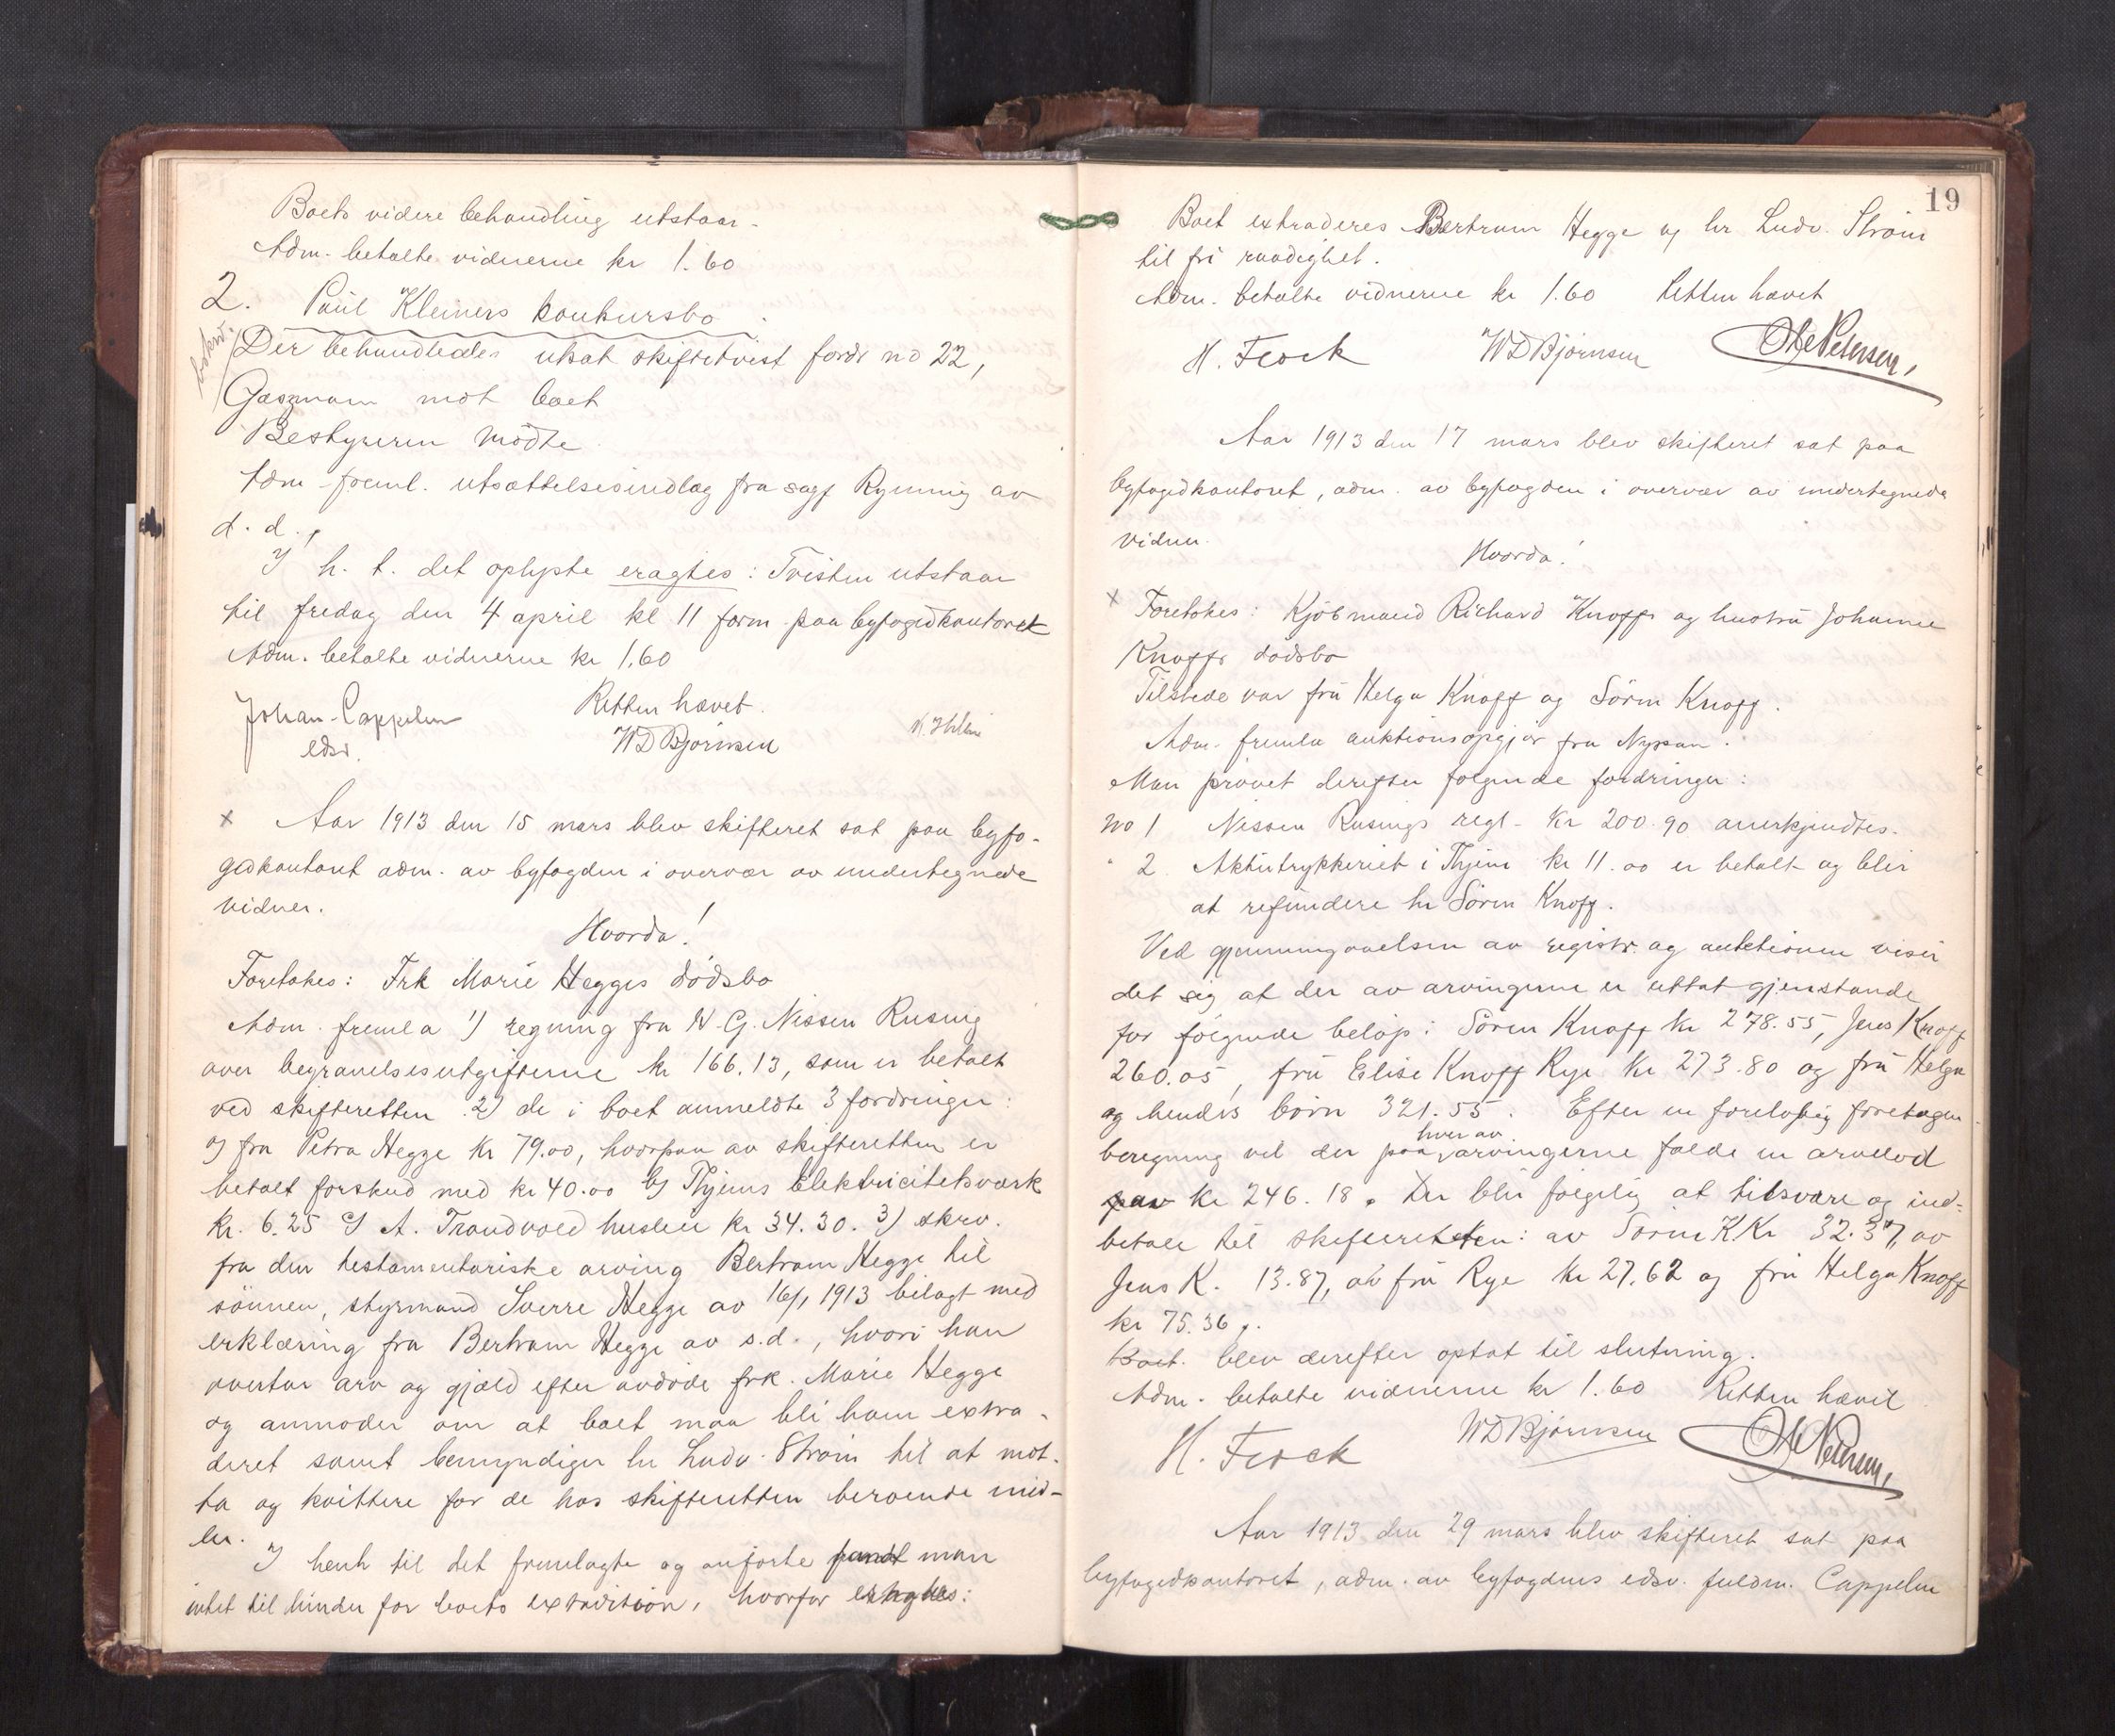 Boets videre behandling utstaar.
Adm. betalte vidnerne kr 1.60
2. Paul Kleiners konkursbo.
Der behandledes utsat skiftetvist fordr no 22,
Gaszmann mot boet
Bestyreren mödte.
Adm freml. utsættelsesindlæg fra sagf Rynning av
d. d.,
I h. t. det oplyste eragtes: Tvisten utstaar
til fredag den 4 april kl 11 form. paa byfogedkontoret
Adm. betalte vidnerne kr 1,60
Retten hævet.
Johan Cappelen
edsv.
WD Björnsen
x Aar 1913 den 15 mars blev skifteret sat paa byfo-
gedkontoret adm. av byfogden i overvær av undertegnede
vidner.
Hvorda!
Foretokes: Frk Marie Hegges dödsbo
Adm. fremla 1) regning fra W. G. Nissen Rusing
over begravelsesutgifterne kr 166.13, som er betalt
ved skifteretten. 2) de i boet anmeldte 3 fordringer:
a) fra Petra Hegge kr 79.00, hvorpaa av skifteretten er
betalt forskud med kr 40.00 b) Thjems Elektricitetsværk
kr. 6.25 c) A. Trondvold husleie kr 34.30. 3) skrv.
fra den testamentariske arving Bertram Hegge til
sönnen, styrmand Sverre Hegge av 16/1 1913 bilagt med
erklæring fra Bertram Hegge av s.d., hvori han
overtar arv og gjæld efter avdöde frk. Marie Hegge
og anmoder om at boet maa bli ham extra-
deret samt bemyndiger hr Ludv. Ström til at mot-
ta og kvittere for de hos skifteretten beroende mid-
ler.
I henh til det fremlagte og anförte fandt man
intet til hinder for boets extradition, hvorfor eragtes:
19
Boet extraderes Bertram Hegge v/ hr. Ludv. Ström
til fri raadighet.
Adm. betalte vidnerne kr 1.60 Retten hævet
H. Frock WD Björnsen Ole Petersen,
Aar 1913 den 17 mars blev skifteret sat paa
byfogedkontoret, adm. av byfogden i overvær av undertegnede
vidner.
Hvorda!
x Foretokes: Kjöbmand Richard Knoffs og hustru Johanne
Knoffs dödsbo
Tilstede var fru Helga Knoff og Sören Knoff.
Adm. fremla auktionsopgjör fra Nyssan.
Man prövet derefter fölgende fordringer:
No 1 Nissen Rusings regl. kr 200.90 anerkjendtes.
" 2 Aktietrykkeriet i Thjem kr 11.00 er betalt og blir
at refundere hr Sören Knoff.
Ved gjennemgaaelsen av registr. og auktionen viser
det sig at der av arvingerne er uttat gjenstande
for fölgende belöp: Sören Knoff kr 278.55, Jens Knoff
260.05, fru Elise Knoff Rye kr 273.80 og fru Helga
og hendes börn 321.55. Efter en forelöpig foretagen
beregning vil der paa hver av arvingerne falde en arvelod
paa kr 246.18. Der blir fölgelig at tilsvare og ind-
betale til skifteretten: av Sören K Kr 32.37, av
Jens K. 13.87, av fru Rye kr 27.62 og fru Helga Knoff
kr 75.36,.
Boet blev derefter optat til slutning.
Adm. betalte vidnerne kr 1.60 Retten hævet
H. Frock WD Björnsen Ole Petersen,
Aar 1913 den 29 mars blev skifteret sat paa
byfogedkontoret, adm. av byfogdens edsv. fuldm. Cappelen